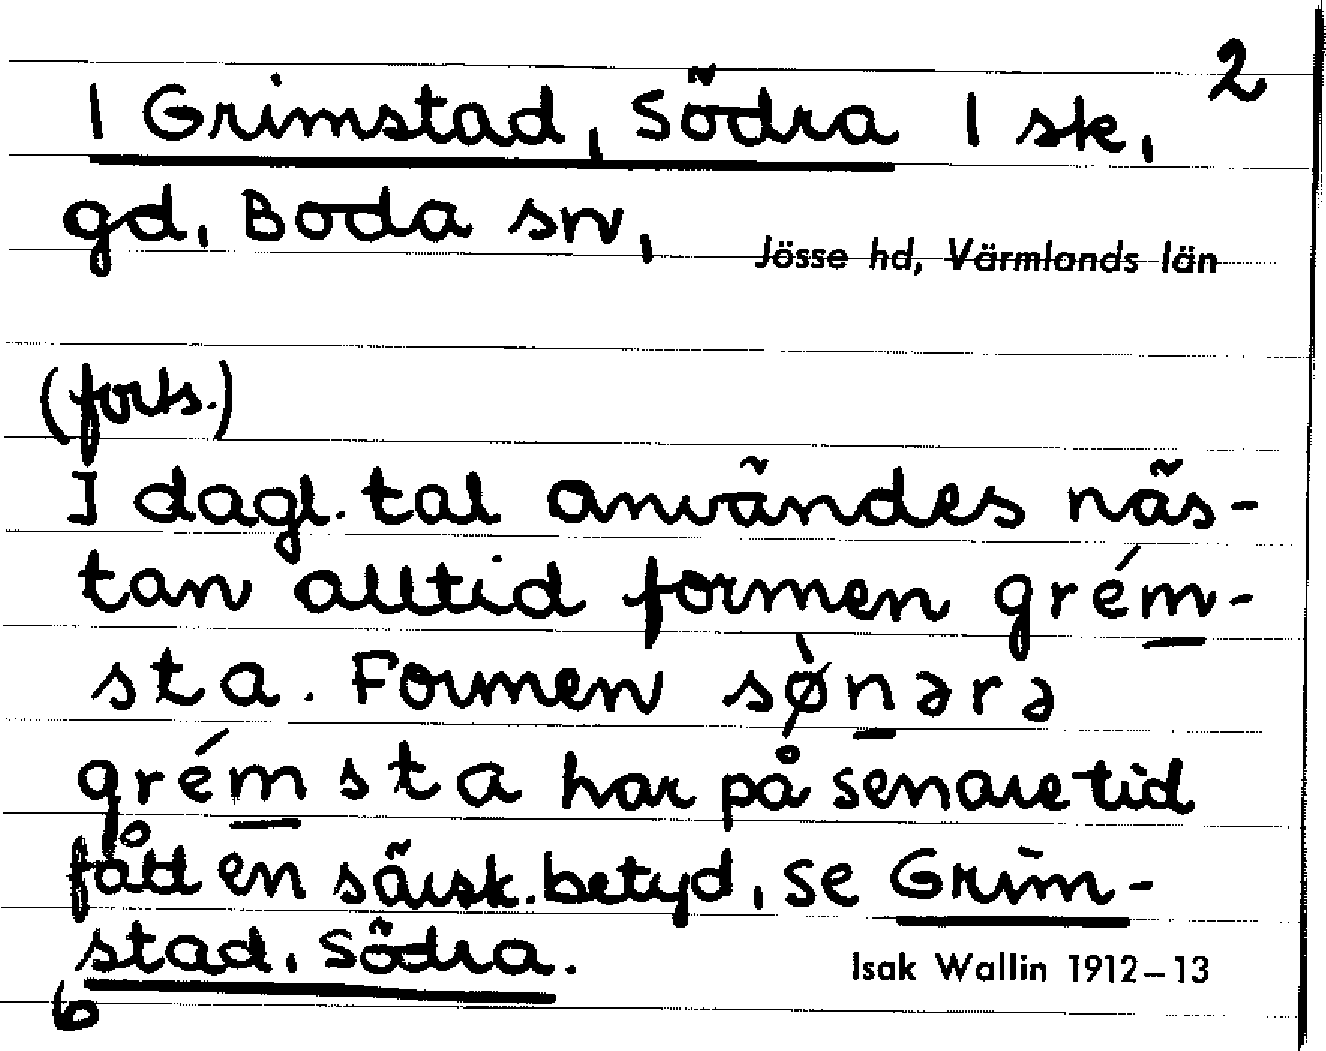 2
1 Grimstad, Södra 1 sk,
gd, Boda sn,
Jösse hd, Värmlands län
(forts.)
I dagl. tal användes näs-
tan alltid formen grém-
sta. Formen sø̀nərə
grémsta har på senare tid
fått en särsk. betyd, se Grim-
stad, Södra.
Isak Wallin 1912–13
6